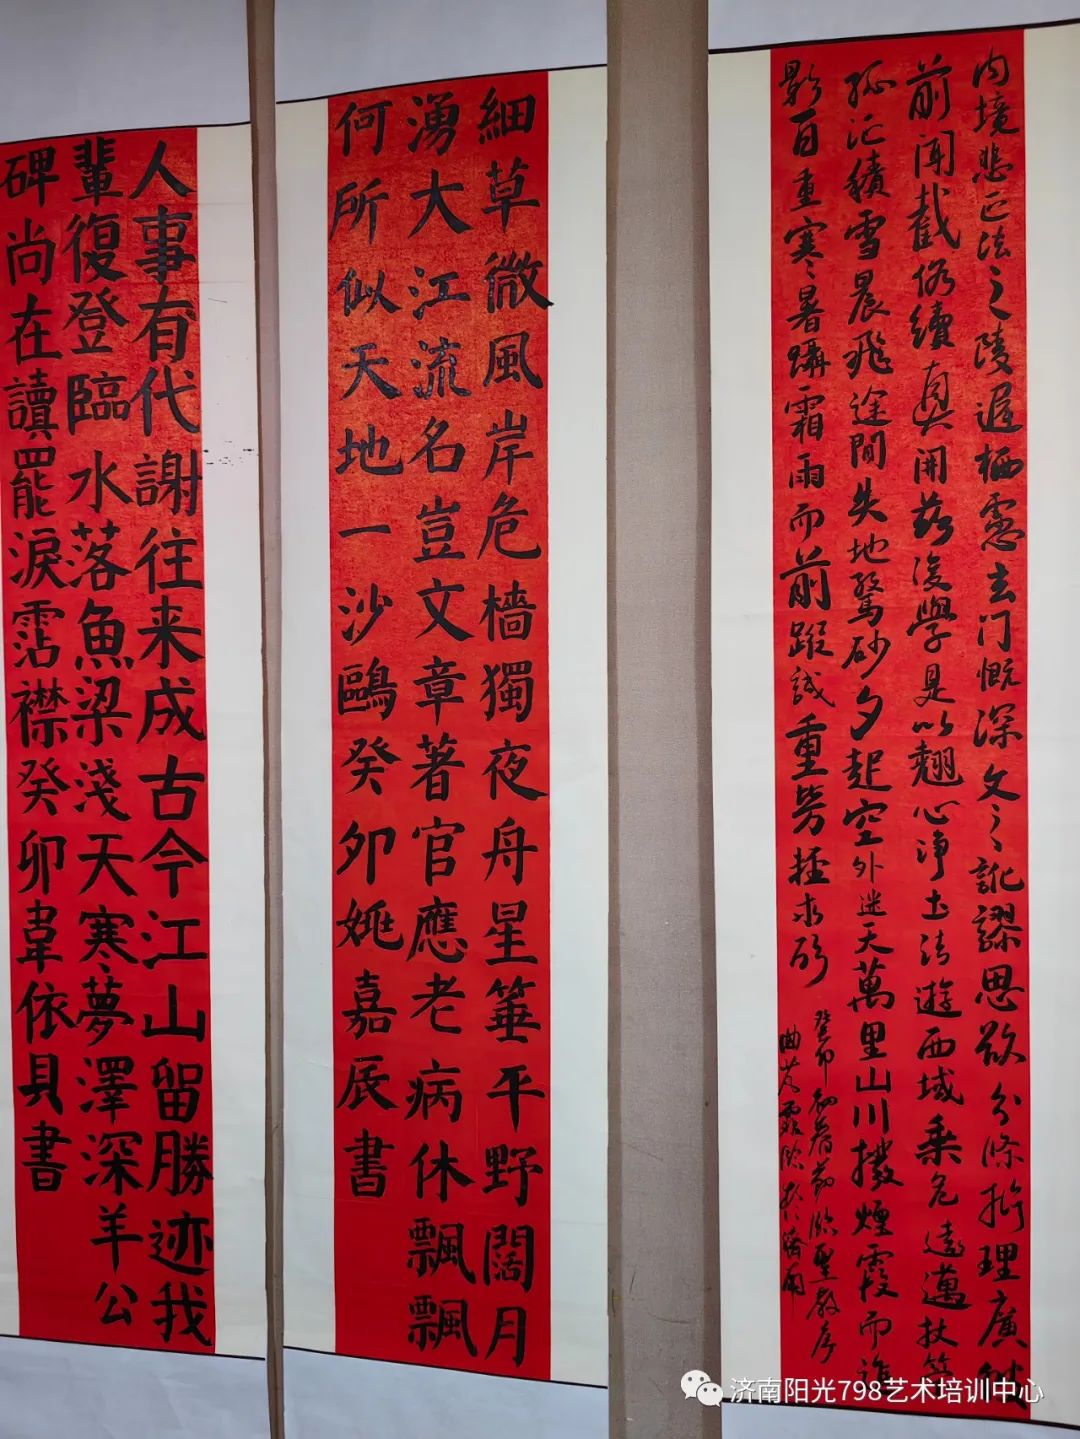 内境悲正法之陵遅栖慮玄門慨深文之訛謬思欲分條析理廣彼
前聞截偽續真開茲後學是以翹心淨土法遊西域乘危遠邁杖策
孤征積雪晨飛途間失地驚砂夕起空外迷天萬里山川撥煙霞而進
影百重寒暑躡霜雨而前蹤誠重勞輕求
癸卯初春節臨聖教序
曲 霞 於濟南
細草微風岸危檣獨夜舟星箠平野闊月
湧大江流名豈文章著官應老病休飄飄
何所似天地一沙鷗癸卯姚嘉辰書
人事有代謝往来成古今江山留勝迹我
輩復登臨水落魚梁淺天寒夢澤深羊公
碑尚在讀罷淚霑襟癸卯韋依具書
济南阳光798艺术培训中心